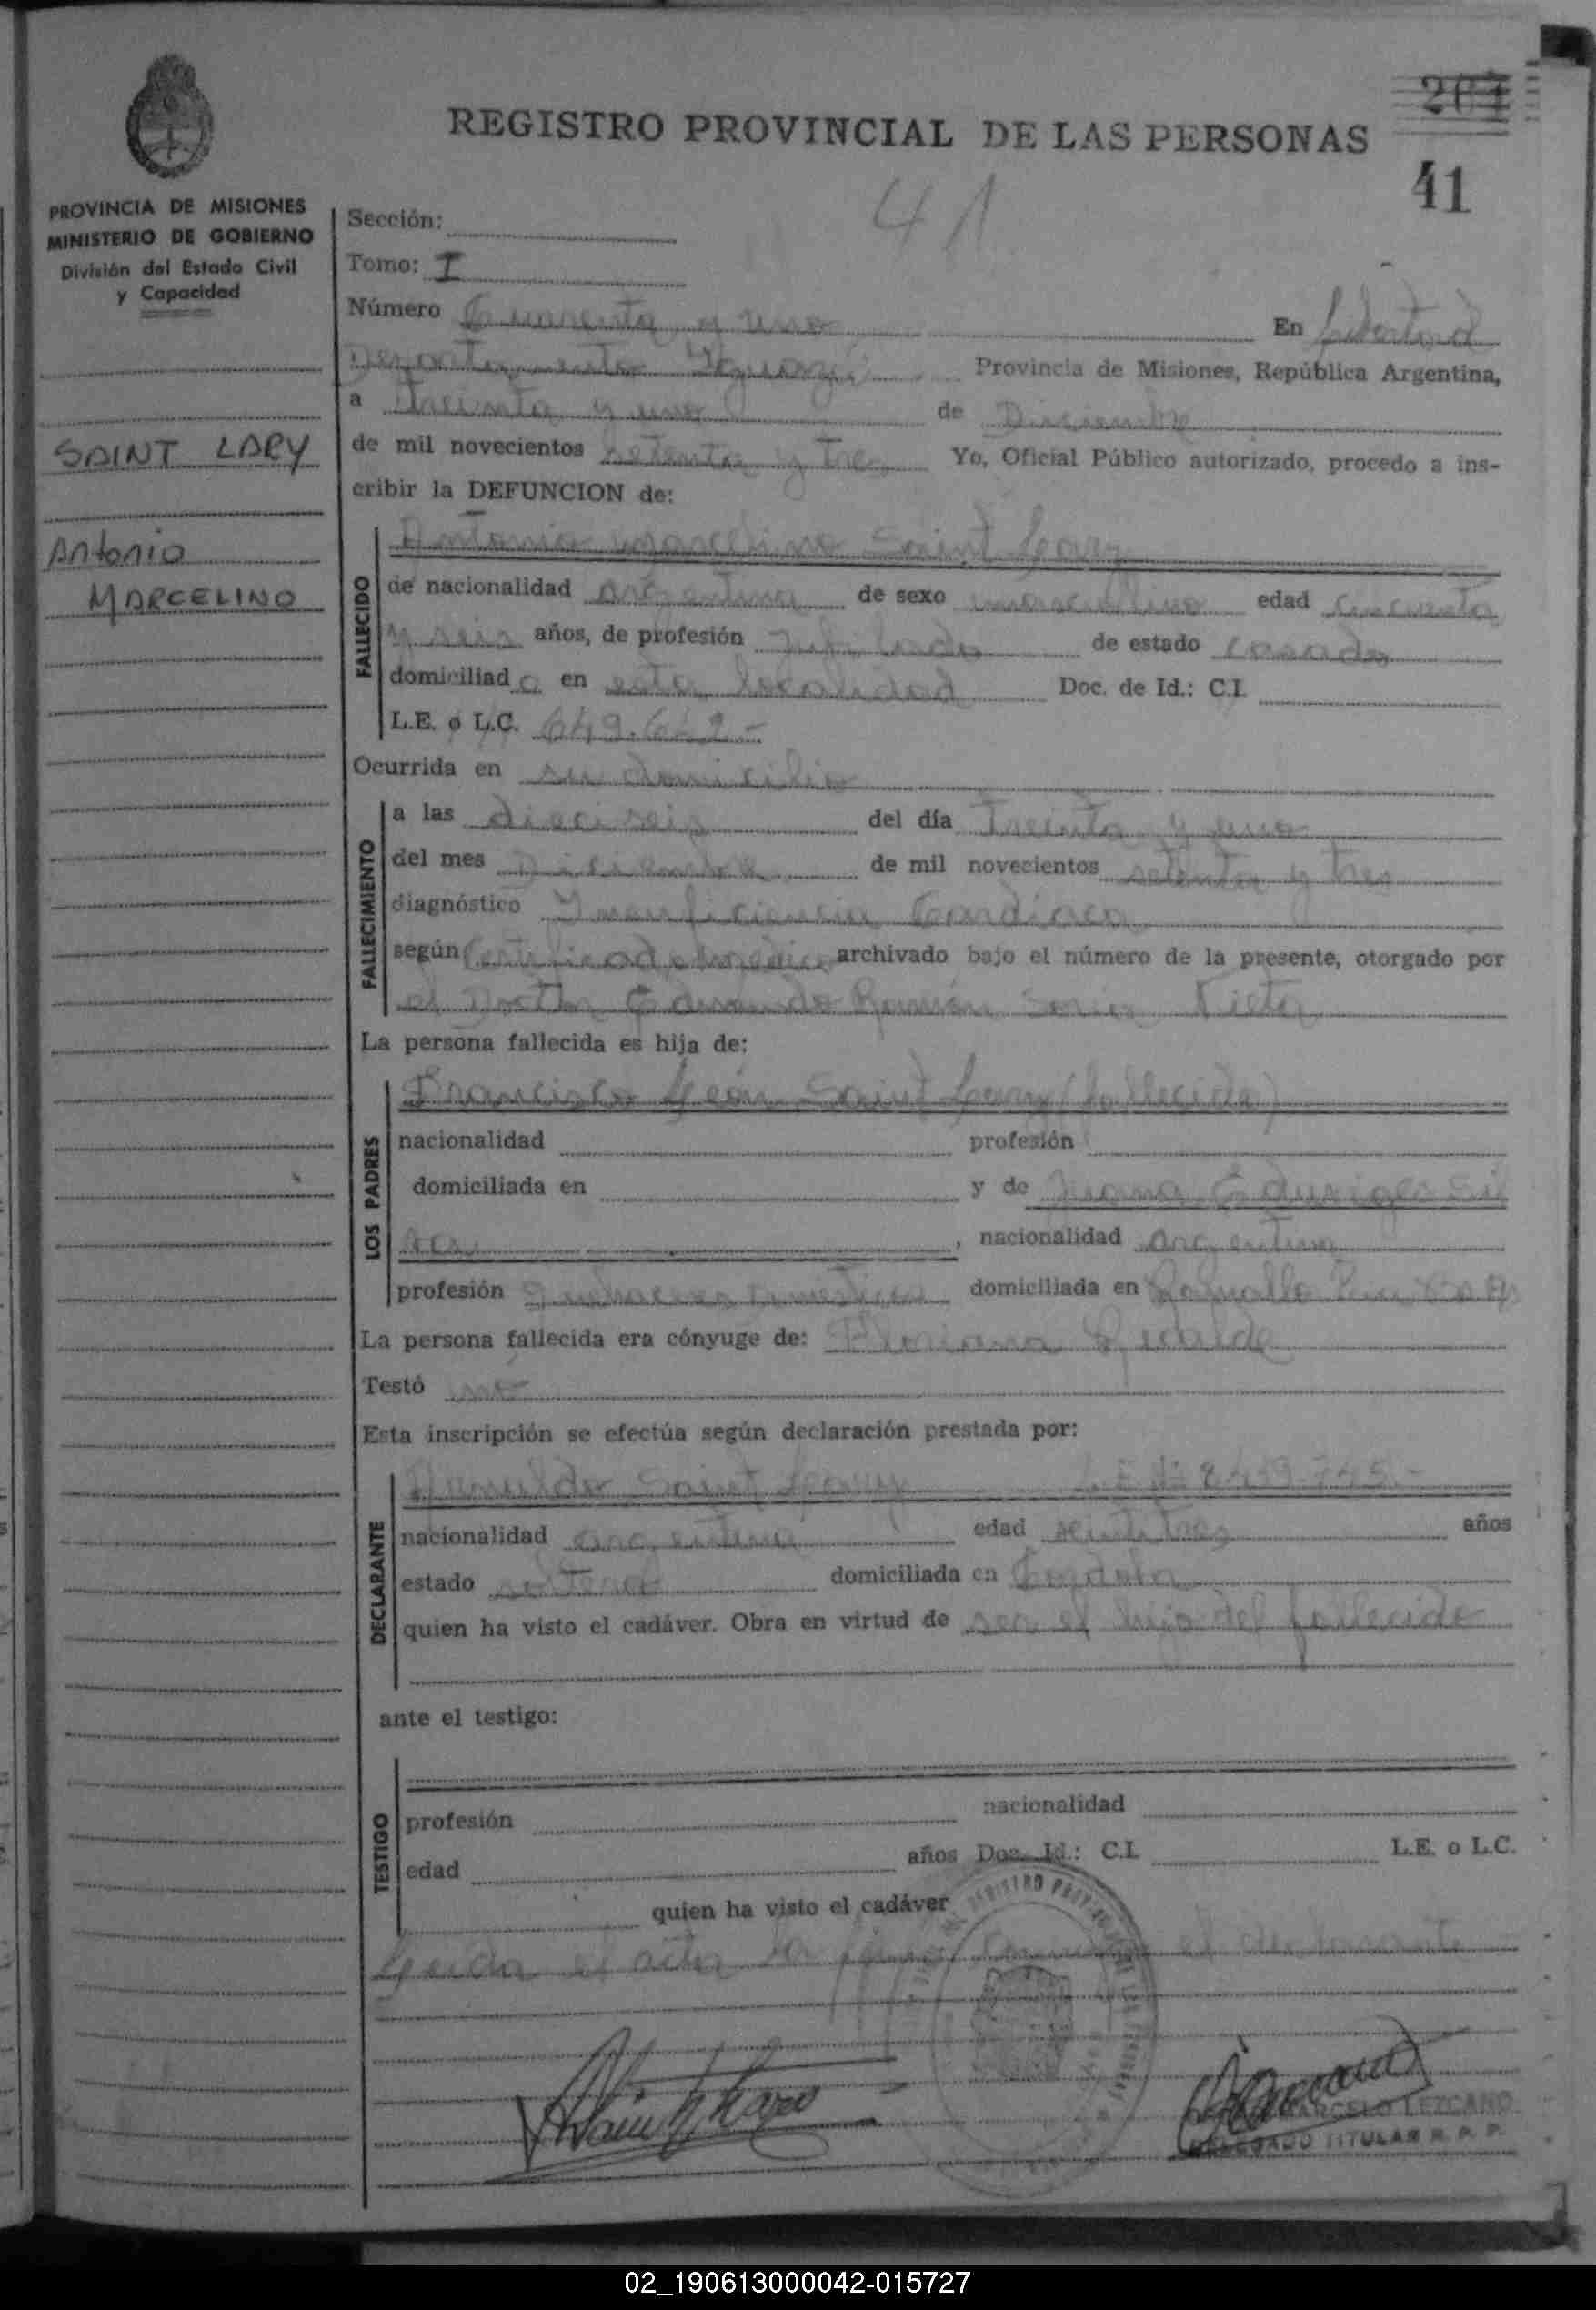 REGISTRO PROVINCIAL DE LAS PERSONAS
41
41
PROVINCIA DE MISIONES
MINISTERIO DE GOBIERNO
División del Estado Civil
y Capacidad
SAINT LARY
Antonio
MARCELINO
Sección:
Tomo: I
Número Cuarenta y uno En Libertad
Departamento Iguazú Provincia de Misiones, República Argentina,
a treinta y uno de Diciembre
de mil novecientos setenta y tres Yo, Oficial Público autorizado, procedo a ins-
cribir la DEFUNCION de:
FALLECIDO
Antonio Marcelino Saint Lary
de nacionalidad argentina de sexo masculino edad cincuenta
y seis años, de profesión Jubilado de estado casado
domiciliado en esta localidad Doc. de Id.: C.I.
L.E. o L.C.
Ocurrida en su domicilio
FALLECIMIENTO
a las dieciseis del día Treinta y uno
del mes Diciembre de mil novecientos setenta y tres
diagnóstico Insuficiencia Cardíaca
según Certificado médico archivado bajo el número de la presente, otorgado por
el Doctor Eduardo Ramón
La persona fallecida es hija de:
LOS PADRES
Francisco León Saint Lary (fallecido)
nacionalidad profesión
domiciliada en y de Juana Eduviges
, nacionalidad argentina
profesión Quehaceres domésticos domiciliada en
La persona fallecida era cónyuge de: Floriana
Testó no
Esta inscripción se efectúa según declaración prestada por:
DECLARANTE
Saint Lary
nacionalidad argentina edad años
estado soltero domiciliada en Córdoba
quien ha visto el cadáver. Obra en virtud de ser el hijo del fallecido
ante el testigo:
TESTIGO
profesión nacionalidad
edad años Doc. Id.: C.I. L.E. o L.C.
quien ha visto el cadáver
Leida el acta la firma conmigo el declarante
MARCELO LEZCANO
DELEGADO TITULAR R. P. P.
02_190613000042-015727